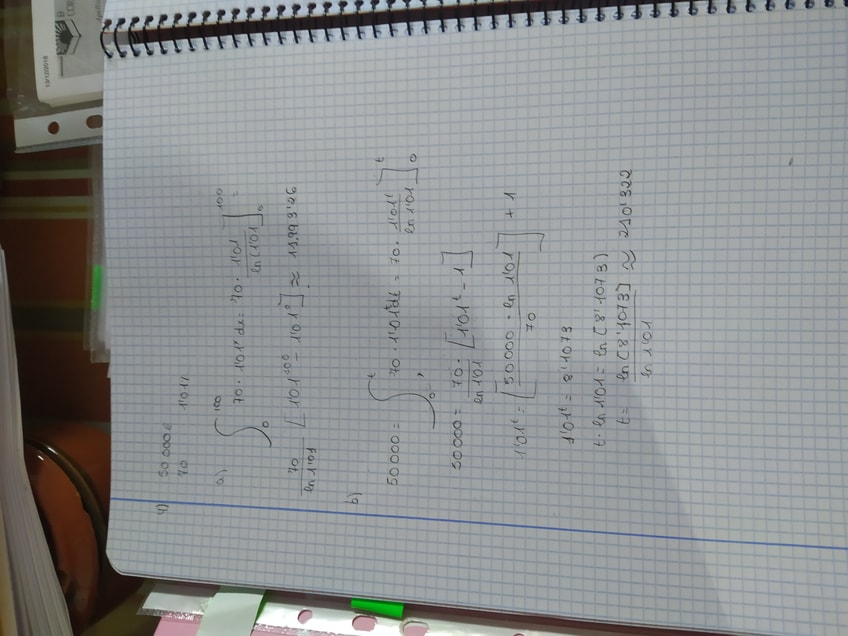 4) 50 000 €
70 1'01^t
a) ∫_0^100 70 · 1'01^t dt = 70 · 1'01^t / ln(1'01) ]_0^100 =
70 / ln 1'01 [ 1'01^100 - 1'01^0 ] ≈ 11.993'26
b)
50000 = ∫_0^t 70 · 1'01^t dt = 70 · 1'01^t / ln 1'01 ]_0^t
50000 = 70 / ln 1'01 · [ 1'01^t - 1 ]
1'01^t = [ 50 000 · ln 1'01 / 70 ] + 1
1'01^t = 8'1073
t · ln 1'01 = ln (8'1073)
t = ln [8'1073] / ln 1'01 ≈ 210'322
13/12/2018